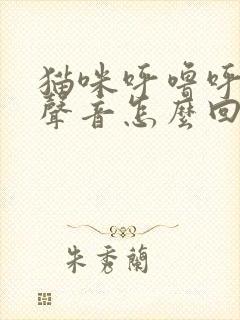 猫咪呼嚕呼
聲音怎麼回
朱秀蘭